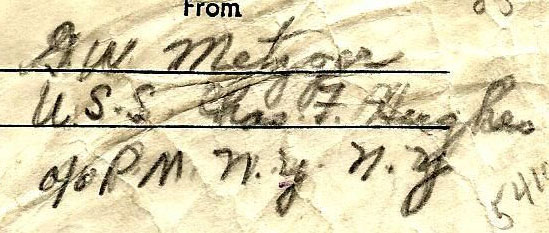 From
G W Metzger
U.S.S. Chas. F. Hughes
c/o P M. N.Y. N.Y